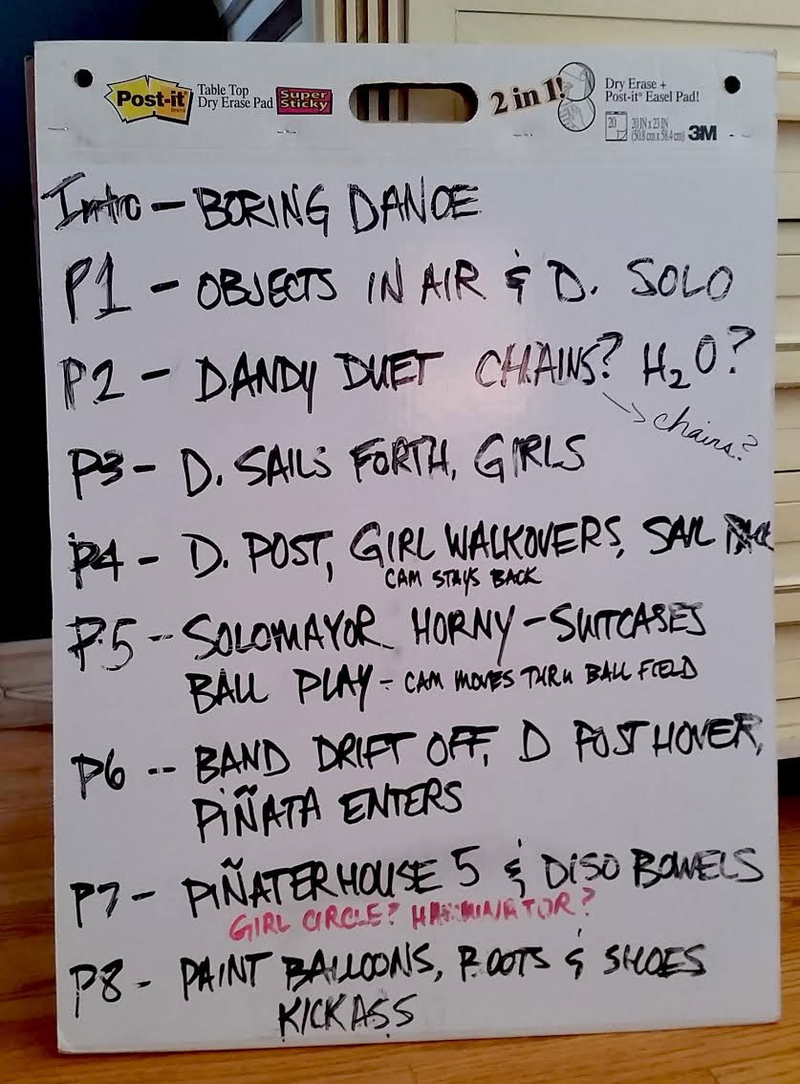 Post-it
Brand
Table Top
Dry Erase Pad
Super
Sticky
2 in 1!
Dry Erase +
Post-it® Easel Pad!
20
20 IN x 23 IN
(50.8 cm x 58.4 cm)
3M
Intro - BORING DANCE
P1 - OBJECTS IN AIR & D. SOLO
P2 - DANDY DUET CHAINS? H₂O?
→ chains?
P3 - D. SAILS FORTH, GIRLS
P4 - D. POST, GIRL WALKOVERS, SAIL
CAM STAYS BACK
P5 -- SOLOMAYOR HORNY - SUITCASES
BALL PLAY - CAM MOVES THRU BALL FIELD
P6 -- BAND DRIFT OFF, D POST HOVER,
PIÑATA ENTERS
P7 - PIÑATERHOUSE 5 & DISO BOWELS
GIRL CIRCLE?
P8 - PAINT BALLOONS, BOOTS & SHOES
KICKASS